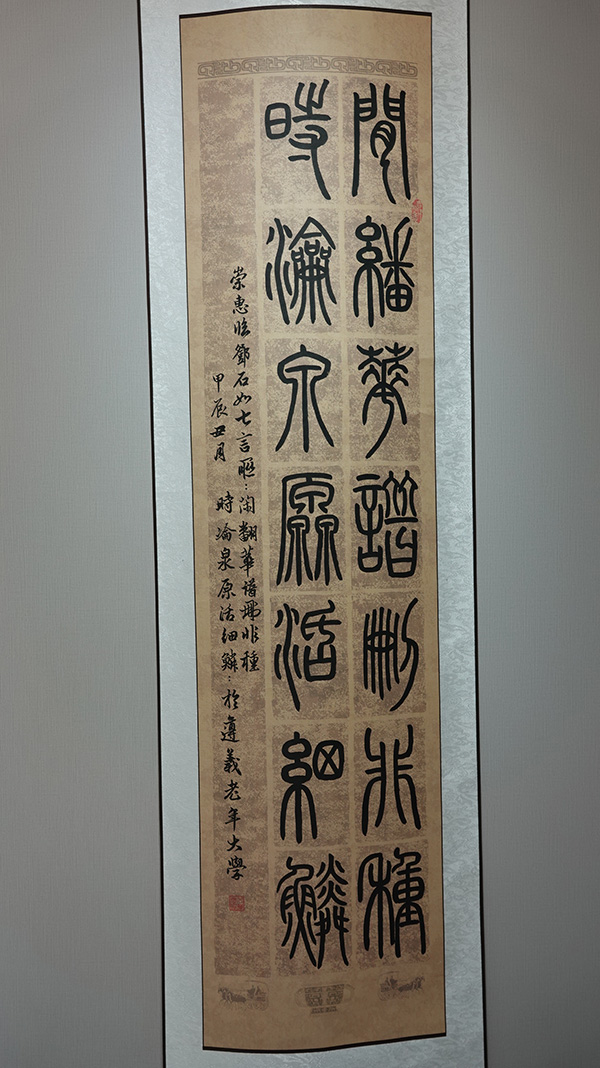 閒繙華譜刪非種
時瀹泉原活細鱗
崇惠臨鄧石如七言聯：閑翻華譜刪非種
甲辰丑月 時瀹泉原活細鱗：於遵義老年大學